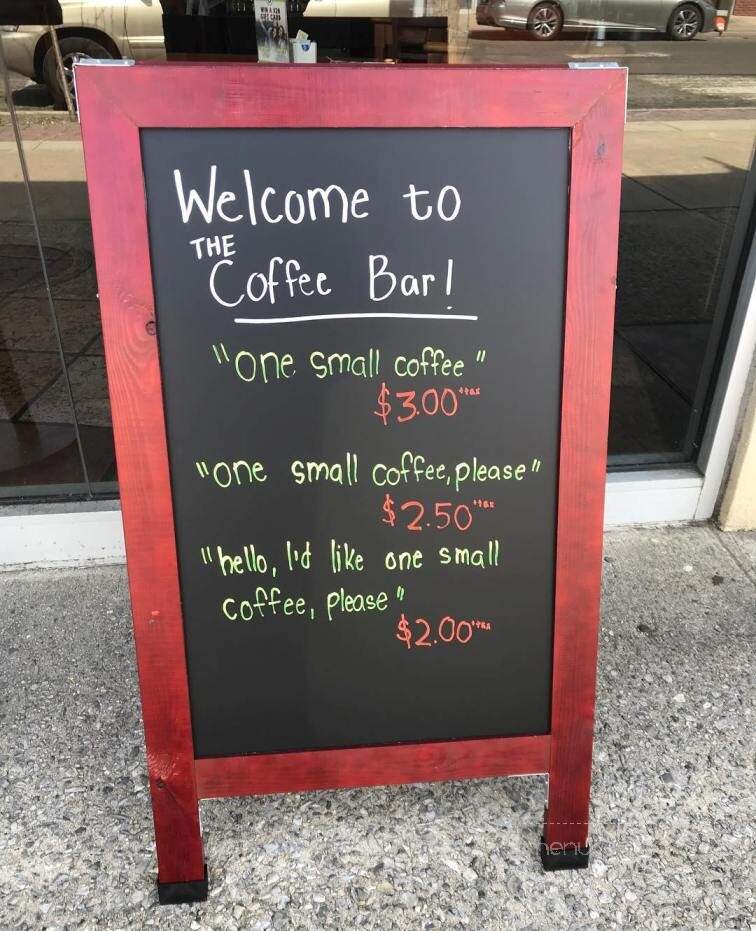 WIN A $20
GIFT CARD
Welcome to
THE
Coffee Bar!
"One small coffee"
$3.00 +tax
"one small coffee, please"
$2.50 +tax
"hello, I'd like one small
coffee, please"
$2.00 +tax
menu